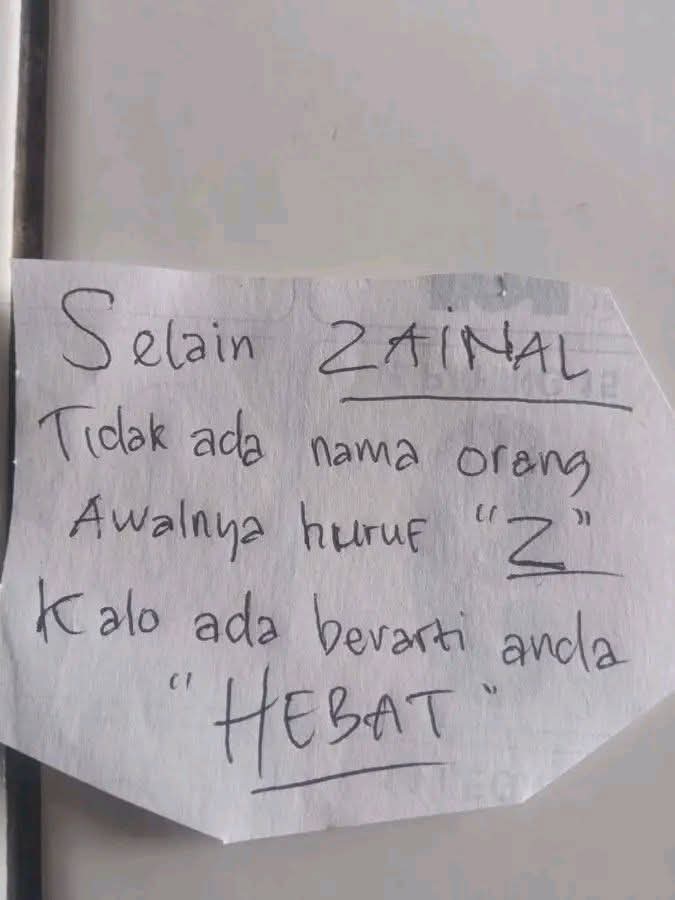 Selain ZAINAL
Tidak ada nama orang
Awalnya huruf "Z"
Kalo ada berarti anda
"HEBAT"